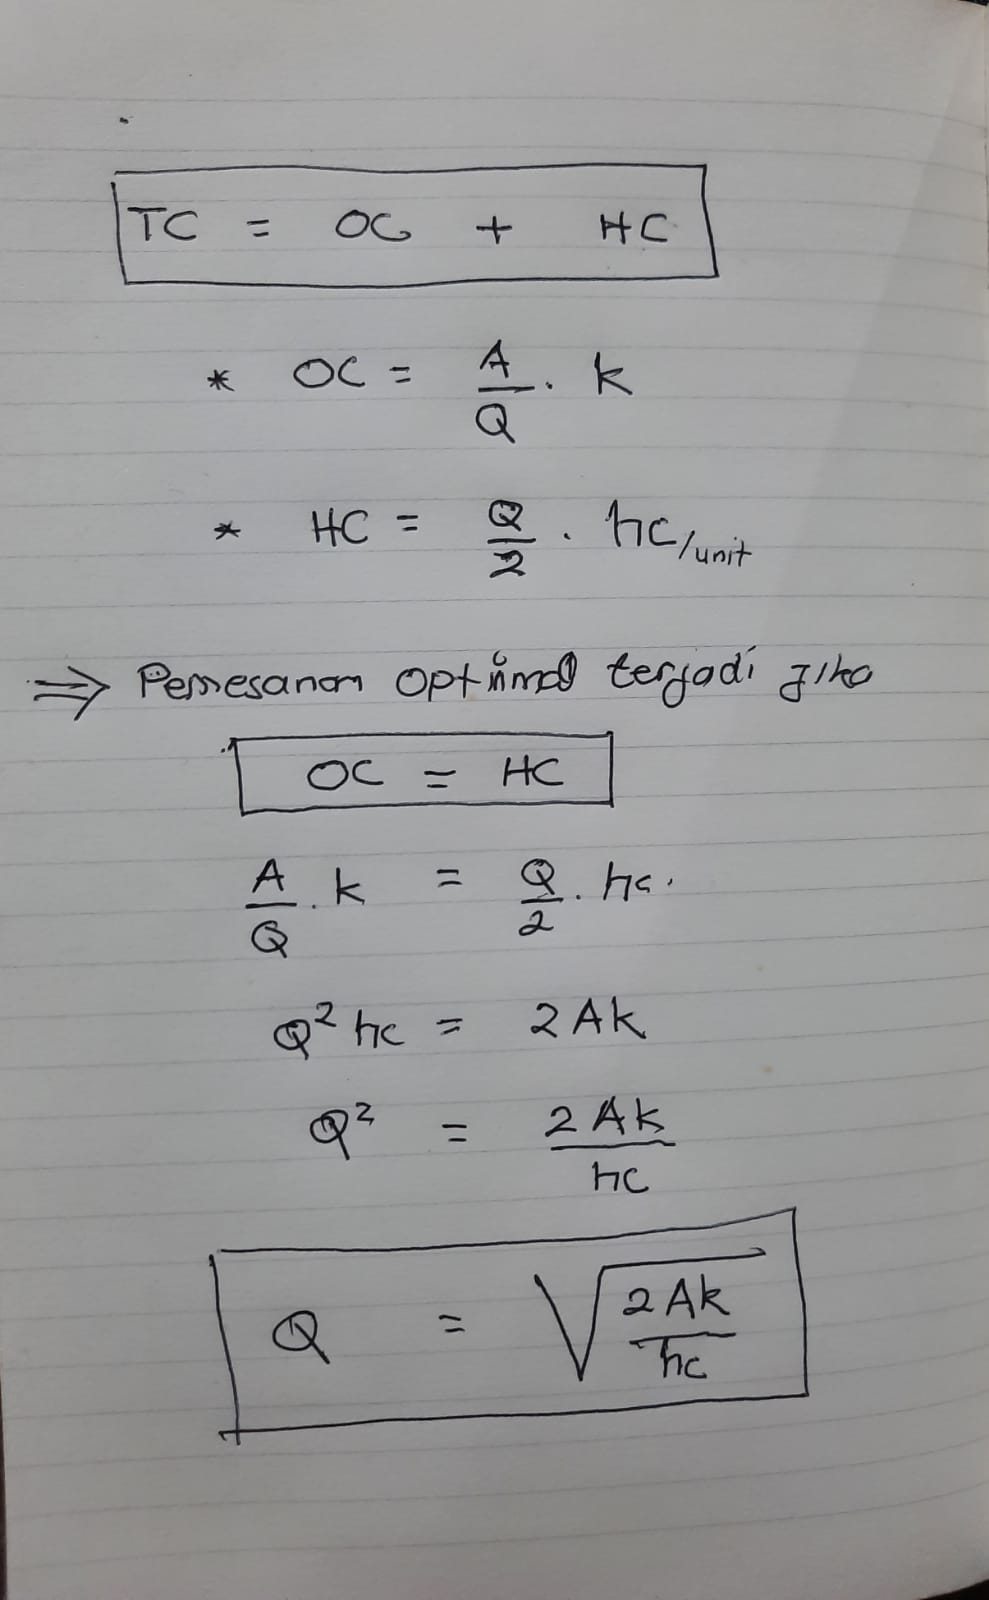 TC = OC + HC
* OC = A/Q . k
* HC = Q/2 . hc/unit
⇒ Pemesanan optimal terjadi jika
OC = HC
A/Q . k = Q/2 . hc.
Q² hc = 2Ak
Q² = 2Ak/hc
Q = √(2Ak/hc)